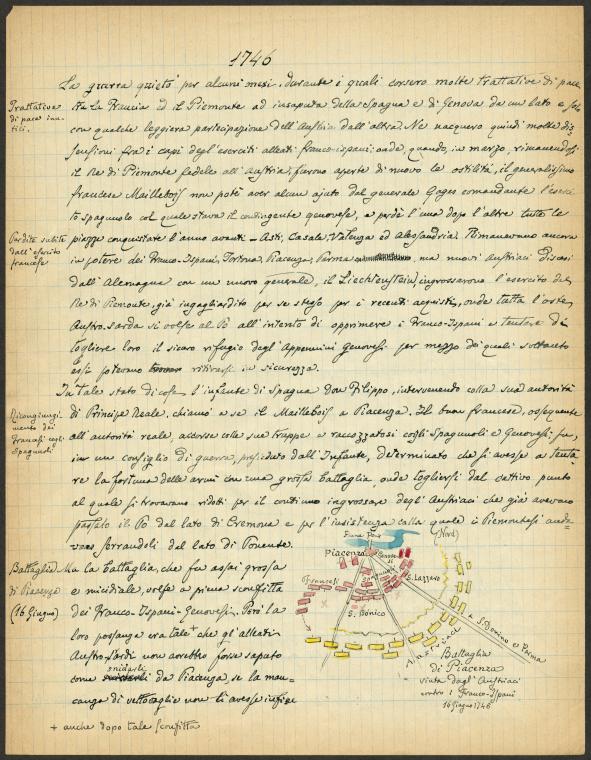 1746
La guerra quietò per alcuni mesi, durante i quali corsero molte trattative di pace
Trattative di pace inutili.
tra la Francia ed il Piemonte ad insaputa della Spagna e di Genova da un lato e
con qualche leggiera partecipazione dell'Austria dall'altra. Ne nacquero quindi molte dis
sensioni fra i capi degli eserciti alleati franco-ispani; onde, quando, in marzo, rimanendo
il Re di Piemonte fedele all'Austria, furono aperte di nuovo le ostilità, il generalissimo
francese Maillebois non potè aver alcun ajuto dal generale Gages comandante l'eserci
to spagnuolo col quale stava il contingente genovese, e perdè l'una dopo l'altre tutte le
Perdite subite dall'esercito francese
piazze conquistate l'anno avanti – Asti, Casale, Valenza ed Alessandria. Rimanevano ancora
in potere dei Franco-Ispani, Tortona, Piacenza, Parma ma nuovi Austriaci discesi
dall'Alemagna con un nuovo generale, il Liechtenstein, ingrossarono l'esercito del
Re di Piemonte, già ingagliardito per se stesso per i recenti acquisti, onde tutta l'oste
Austro-sarda si volse al Po all'intento di opprimere i Franco-Ispani e tentare di
togliere loro il sicuro rifugio degli Appennini Genovesi per mezzo dei quali soltanto
essi potevano ritirarsi in sicurezza.
In tale stato di cose, l'infante di Spagna don Filippo, intervenendo colla sua autorità
Ricongiungimento dei francesi cogli Spagnuoli
di Principe Reale, chiamò a se il Maillebois a Piacenza. Il buon francese, ossequente
all'autorità reale, accorse colle sue truppe e raccozzatosi cogli Spagnuoli e Genovesi fu,
in un consiglio di guerra, presieduto dall'Infante, determinato che si avesse a tenta
re la fortuna delle armi con una grossa battaglia, onde togliersi dal cattivo punto
al quale si trovavano ridotti per il continuo ingrossare degli Austriaci che già avevano
passato il Po dal lato di Cremona e per l'insistenza colla quale i Piemontesi anda
vano serrandoli dal lato di Ponente.
Battaglia di Piacenza (16 Giugno)
Ma la battaglia, che fu assai grossa
e micidiale, volse a piena sconfitta
dei Franco-Ispani-Genovesi. Però la
loro possanza era tale + che gl'alleati
Austro-Sardi non avrebbe forse saputo
come snidarli da Piacenza, se la man-
canza di vettovaglie non li avesse infine
+ anche dopo tale sconfitta
Fiume Po
(Nord)
Piacenza
S. Lazzaro
Francesi
Spagnuoli
S. Bonico
Austriaci
a S. Dorino e Parma
Battaglia
di Piacenza
vinta dagl'Austriaci
contro i Franco-Ispani
16 Giugno 1746